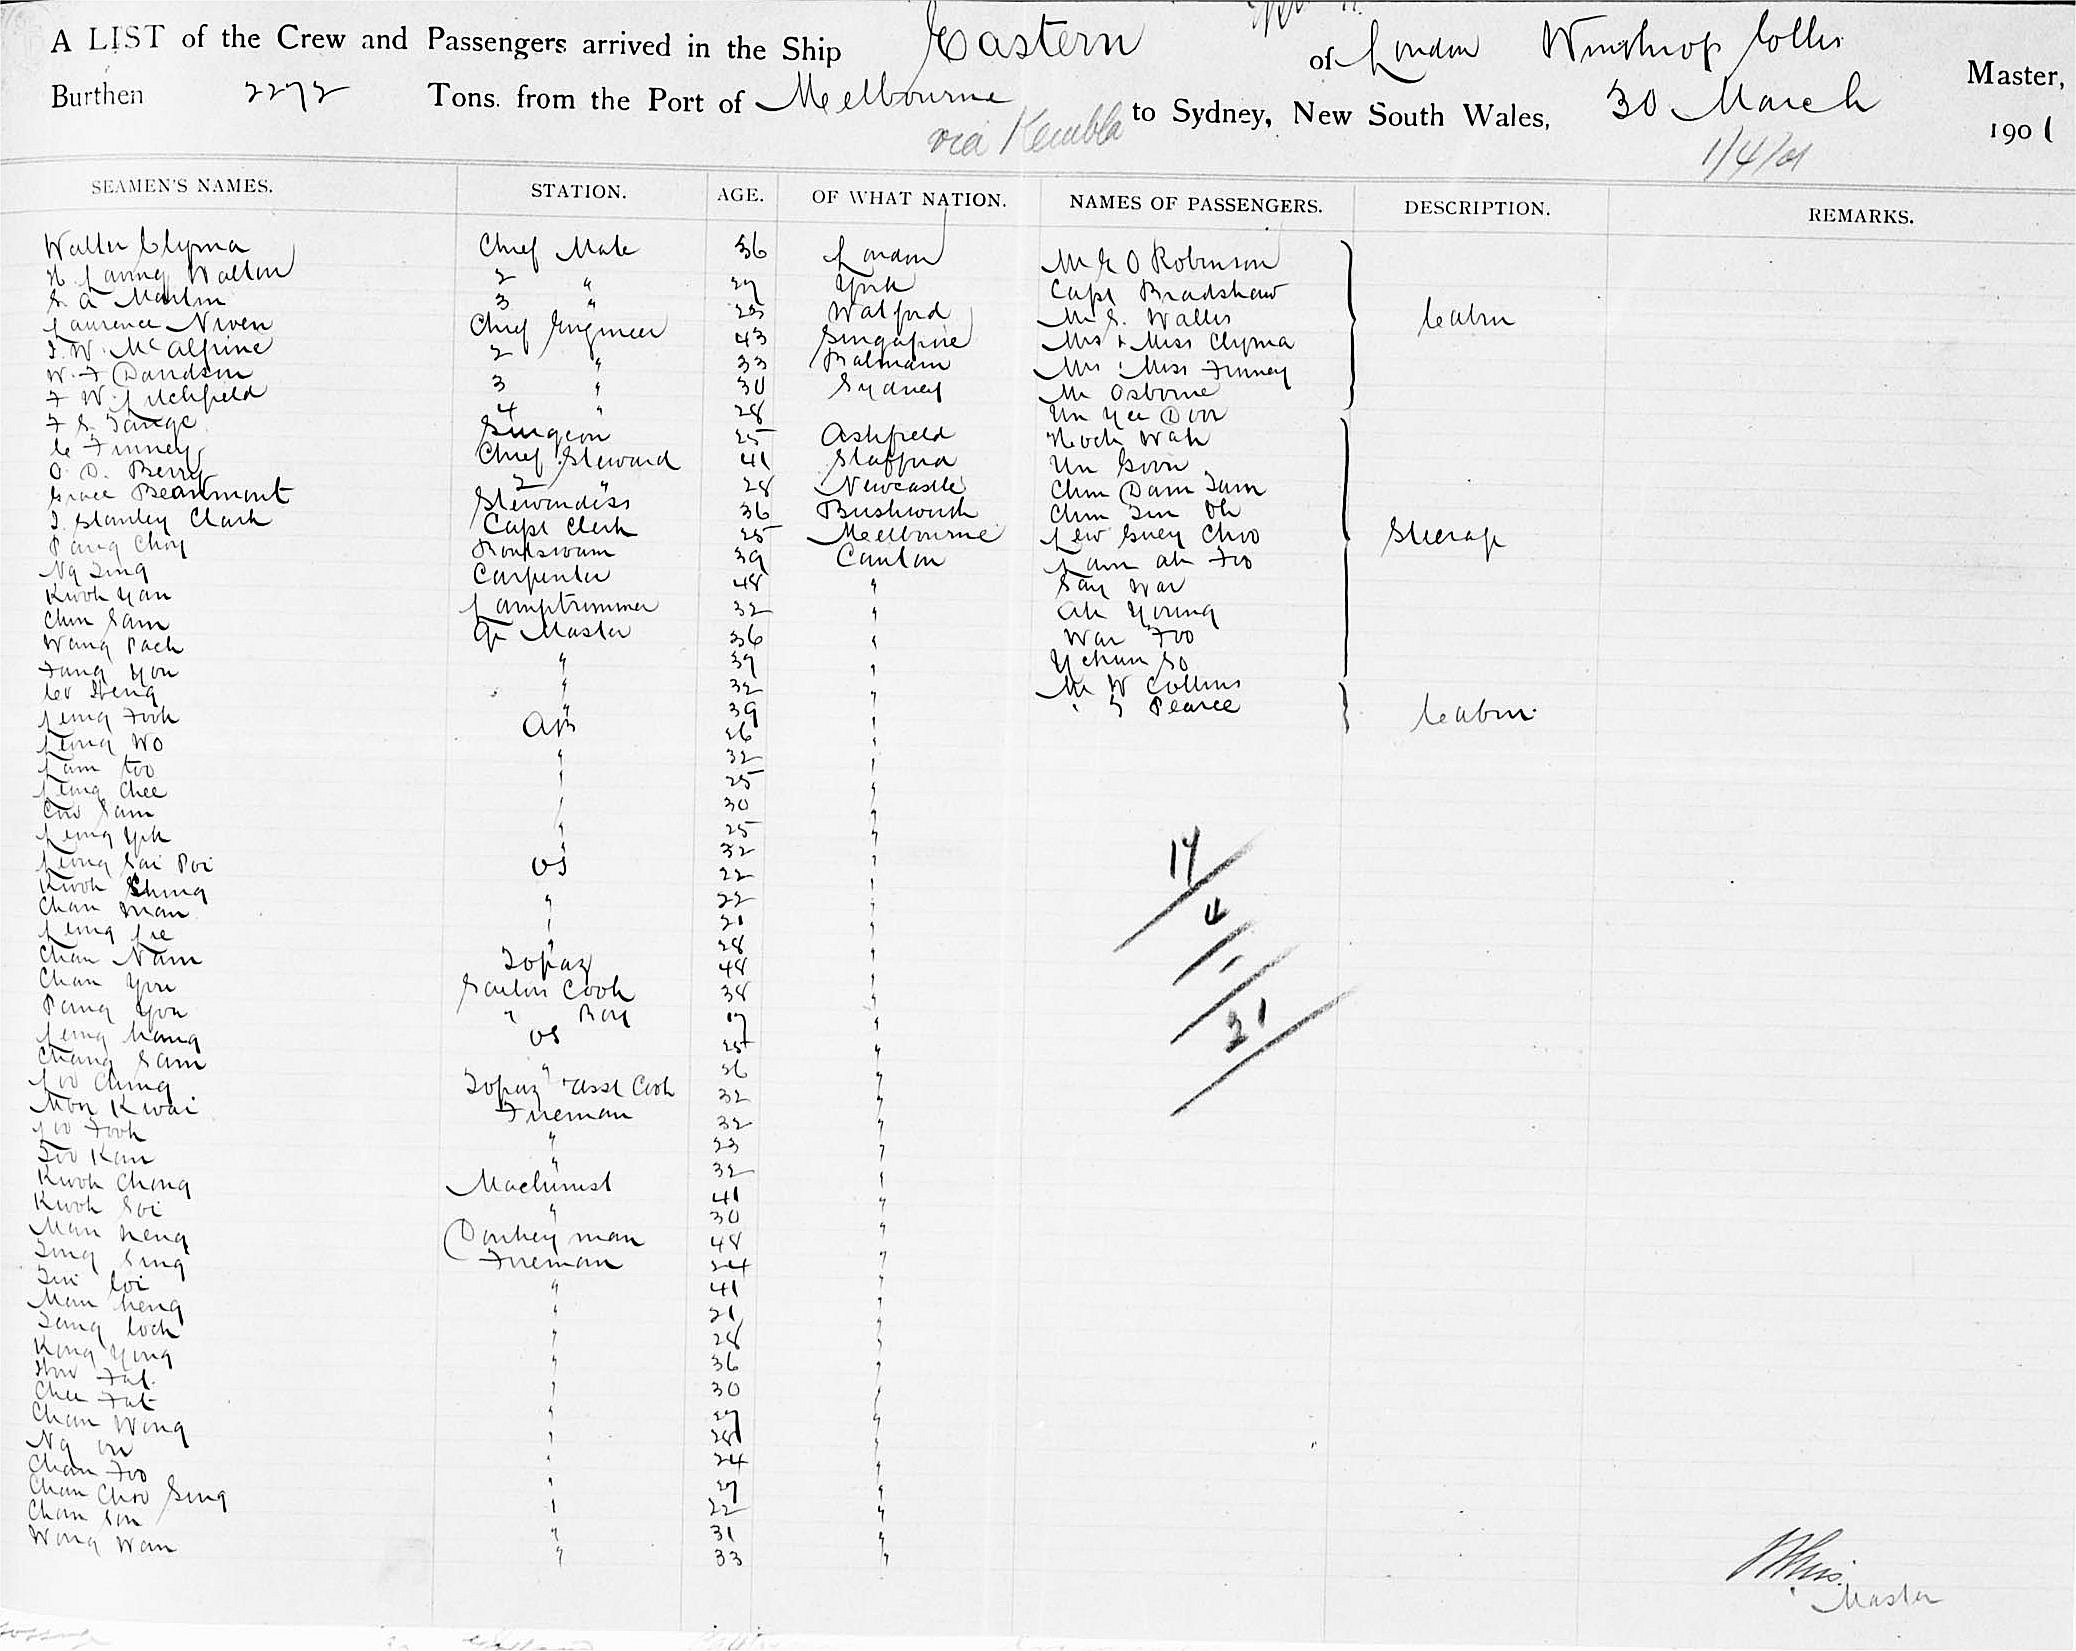 A LIST of the Crew and Passengers arrived in the Ship Eastern of London Winthrop Ellis Master,
Burthen 2272 Tons from the Port of Melbourne to Sydney, New South Wales, 30 March 1901
via Kembla 1/4/01
SEAMEN'S NAMES. STATION. AGE. OF WHAT NATION. NAMES OF PASSENGERS. DESCRIPTION. REMARKS.
Walter Clyma Chief Mate 36 London Mr E O Robinson
H. Laving Walton 2 " 27 York Capt Bradshaw
S. A Martin 3 " 23 Watford Mr S. Wallis Cabin
Laurence Niven Chief Engineer 43 Singapore Mrs & Miss Clyma
J. W. McAlpine 2 " 33 Balmain Mrs & Miss Finney
W. F Davidson 3 " 30 Sydney Mr Osborne
F W. Litchfield 4 " 28 Un Yee Doon
F S. Tange Surgeon 25 Ashfield Hock Wah
C Finney Chief Steward 41 Stafford Un Goon
O. D. Berry 2 " 28 Newcastle Chin Dam Tam
Grace Beaumont Stewardess 36 Bushworth Chin Tin Oh
J. Stanley Clark Capt Clerk 25 Melbourne Lew Guey Choo Steerage
Pang Choy Boatswain 39 Canton Lam ah Foo
Ng Ting Carpenter 48 " Say War
Kwok Yau Lamptrimmer 32 " Ah Young
Chin Sam Qr Master 36 " War Foo
Wang Pack " 39 " Y Chun So
Fang You " 32 " Mr W Collins
Co Sheng " 39 " " G Pearce Cabin
Leung Fook AB 26 "
Leung Wo " 32 "
Lam Loo " 25 "
Leung Chee " 30 "
Cow Sam " 25 "
Leung Yuk " 32 "
Leong Sai Poi OS 22 "
Kwok Shing " 22 "
Chan Man " 21 "
Leung Lee " 28 "
Chan Nam Topaz 48 "
Chan You Sailors Cook 38 "
Pang You " Boy 17 "
Leung Mang OS 25 "
Chang Sam " 36 "
Loo Ching Topaz & Asst Cook 32 "
Mon Kwai Fireman 32 "
Loo Fook " 23 "
Too Kan " 32 "
Kwok Chong Machinist 41 "
Kwok Soi " 30 "
Man Heng Donkeyman 48 "
Ting Sing Fireman 24 "
Tui Coi " 41 "
Man Cheng " 21 "
Tang Cock " 28 "
Kong Yong " 36 "
How Fat " 30 "
Chee Fat " 27 "
Chan Wong " 28 "
Ng On " 24 "
Chan Foo " 27 "
Chan Choo Sing " 22 "
Chan Son " 31 "
Wong Wan " 33 "
17
4
-
21
WEllis.
Master